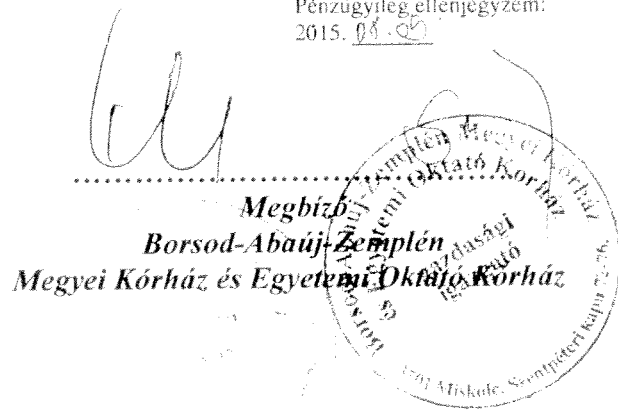 Pénzügyileg ellenjegyzem:
2015.
Megbízó
Borsod-Abaúj-Zemplén
Megyei Kórház és Egyetemi Oktató Kórház
Borsod-Abaúj-Zemplén Megyei Kórház
és Egyetemi Oktató Kórház
gazdasági
igazgató
Miskolc, Szentpéteri kapu 72-76.